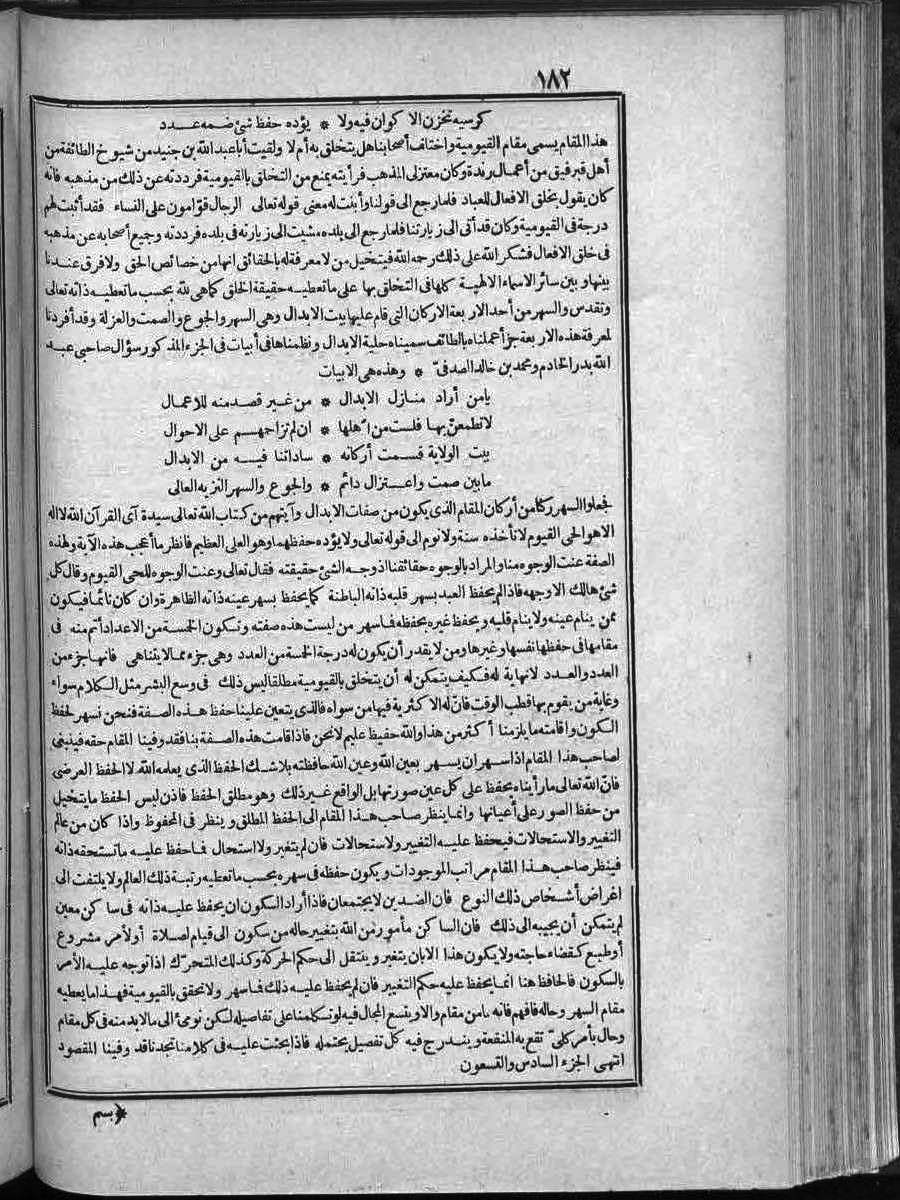 ١٨٢
كرسيه تخزن الاكوان فيه ولا * يؤده حفظ شئ ضمه عدد
هذا المقام يسمى مقام القيومية واختلف أصحابنا هل يتخلق به أم لا ولقيت أبا عبد الله بن جنيد من شيوخ الطائفة من
أهل قبرفيق من أعمال رندة وكان معتزلى المذهب فرأيته يمنع من التخلق بالقيومية فرددته عن ذلك من مذهبه فانه
كان يقول بخلق الافعال للعباد فلما رجع الى قولنا وأبنت له معنى قوله تعالى الرجال قوّامون على النساء فقد أثبت لهم
درجة فى القيومية وكان قد أتى الى زيارتنا فلما رجع الى بلده مشيت الى زيارته فى بلده فرددته وجميع أصحابه عن مذهبه
فى خلق الافعال فشكر الله على ذلك رحمه الله فيتخيل من لا معرفة له بالحقائق انها من خصائص الحق ولا فرق عندنا
بينها وبين سائر الاسماء الالهية كلها فى التخلق بها على ما تعطيه حقيقة الخلق كما هى لله بحسب ما تعطيه ذاته تعالى
وتقدس والسهر من أحد الاربعة الاركان التى قام عليها بيت الابدال وهى السهر والجوع والصمت والعزلة وقد أفردنا
لمعرفة هذه الاربعة جزأ عملناه بالطائف سميناه حلية الابدال ونظمناها فى أبيات فى الجزء المذكور سؤال صاحبى عبد
الله بدر الخادم ومحمد بن خالد الصدفىّ * وهذه هى الابيات
يامن أراد منازل الابدال * من غير قصد منه للاعمال
لاتطمعنّ بها فلست من أهلها * ان لم تزاحمهم على الاحوال
بيت الولاية قسمت أركانه * ساداتنا فيه من الابدال
مابين صمت واعتزال دائم * والجوع والسهر النزيه العالى
فجعلوا السهر ركنا من أركان المقام الذى يكون من صفات الابدال وآيتهم من كتاب الله تعالى سيدة آى القرآن الله لا اله
الا هو الحى القيوم لا تأخذه سنة ولا نوم الى قوله تعالى ولا يؤده حفظهما وهو العلى العظيم فانظر ما أعجب هذه الآية ولهذه
الصفة عنت الوجوه منا والمراد بالوجوه حقائقنا اذ وجه الشئ حقيقته فقال تعالى وعنت الوجوه للحى القيوم وقال كل
شئ هالك الا وجهه فاذا لم يحفظ العبد بسهر قلبه ذاته الباطنة كما يحفظ بسهر عينه ذاته الظاهرة وان كان نائما فيكون
ممن ينام عينه ولا ينام قلبه ويحفظ غيره بحفظه فما سهر من ليست هذه صفته وتكون الخمسة من الاعداد أتم منه فى
مقامها فى حفظها نفسها وغيرها ومن لا يقدر أن يكون له درجة الخمسة من العدد وهى جزء مما لا يتناهى فانها جزء من
العدد والعدد لا نهاية له فكيف يتمكن له أن يتخلق بالقيومية مطلقا ليس ذلك فى وسع البشر مثل الكلام سواء
وغاية من يقوم بها قطب الوقت فانّ له الاكثرية فيها من سواه فالذى يتعين علينا حفظ هذه الصفة فنحن نسهر لحفظ
الكون واقامته ما يلزمنا أكثر من هذا والله حفيظ عليم لانحن فاذا قامت هذه الصفة بنا فقد وفينا المقام حقه فينبغى
لصاحب هذا المقام اذا سهر ان يسهر بعين الله وعين الله حافظته بلا شك الحفظ الذى يعلمه الله لا الحفظ العرضى
فانّ الله تعالى مارأيناه يحفظ على كل عين صورتها بل الواقع غير ذلك وهو مطلق الحفظ فاذن ليس الحفظ ما يتخيل
من حفظ الصور على أعيانها وانما ينظر صاحب هذا المقام الى الحفظ المطلق وينظر فى المحفوظ واذا كان من عالم
التغيير والاستحالات فيحفظ عليه التغيير والاستحالات فان لم يتغير ولا استحال فما حفظ عليه ما تستحقه ذاته
فينظر صاحب هذا المقام مراتب الموجودات ويكون حفظه فى سهره بحسب ما تعطيه رتبة ذلك العالم ولا يلتفت الى
اغراض أشخاص ذلك النوع فان الضدين لا يجتمعان فاذا أراد السكون ان يحفظ عليه ذاته فى ساكن معين
لم يتمكن أن يجيبه الى ذلك فان الساكن مأمور من الله بتغيير حاله من سكون الى قيام لصلاة أو لأمر مشروع
أو طبيع كقضاء حاجته ولا يكون هذا الابان يتغير وينتقل الى حكم الحركة وكذلك المتحرّك اذا توجه عليه الأمر
بالسكون فالحافظ هنا انما يحفظ عليه حكم التغيير فان لم يحفظ عليه ذلك فما سهر ولا تحقق بالقيومية فهذا ما يعطيه
مقام السهر وحاله فافهم فانه مامن مقام والا ويتسع المجال فيه لو تكلمنا على تفاصيله لكن نومئ الى مالابد منه فى كل مقام
وحال بأمر كلىّ تقع به المنفعة ويندرج فيه كل تفصيل يحتمله فاذا بحثت عليه فى كلامنا تجدنا قد وفينا المقصود
انتهى الجزء السادس والتسعون
﴿بسم